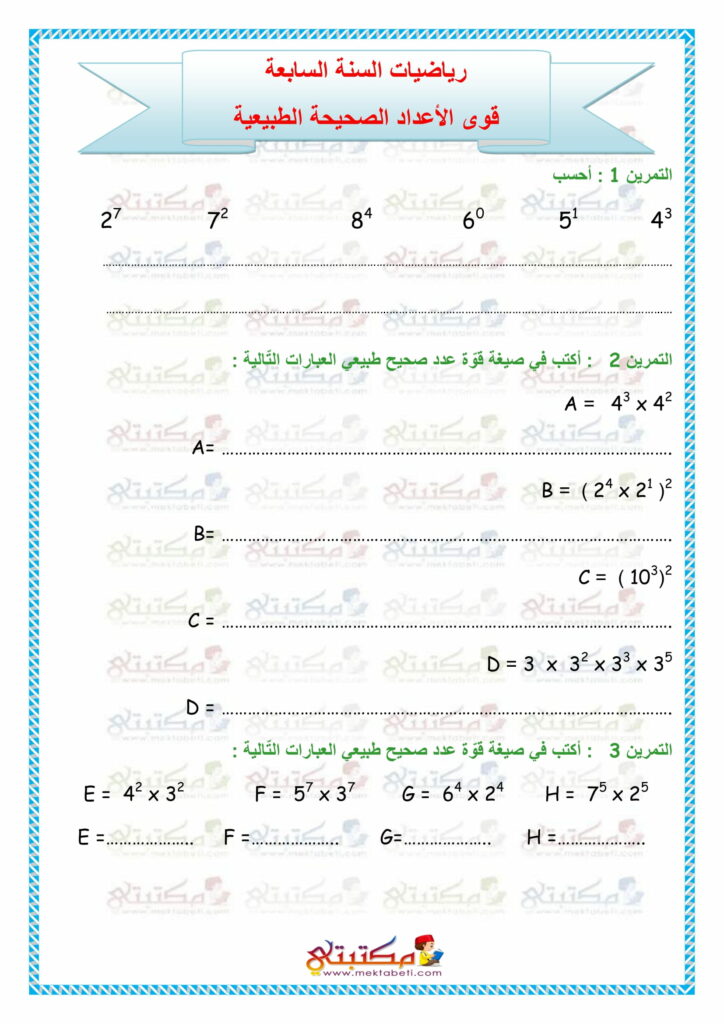 رياضيات السنة السابعة
قوى الأعداد الصحيحة الطبيعية
التمرين 1 : أحسب
2⁷ 7² 8⁴ 6⁰ 5¹ 4³
التمرين 2 : أكتب في صيغة قوّة عدد صحيح طبيعي العبارات التّالية :
A = 4³ x 4²
A= ........................................
B = ( 2⁴ x 2¹ )²
B= ........................................
C = ( 10³)²
C = ........................................
D = 3 x 3² x 3³ x 3⁵
D = ........................................
التمرين 3 : أكتب في صيغة قوّة عدد صحيح طبيعي العبارات التّالية :
E = 4² x 3² F = 5⁷ x 3⁷ G = 6⁴ x 2⁴ H = 7⁵ x 2⁵
E =.................... F =.................... G=.................... H =....................
مكتبتي
www.mektabeti.com